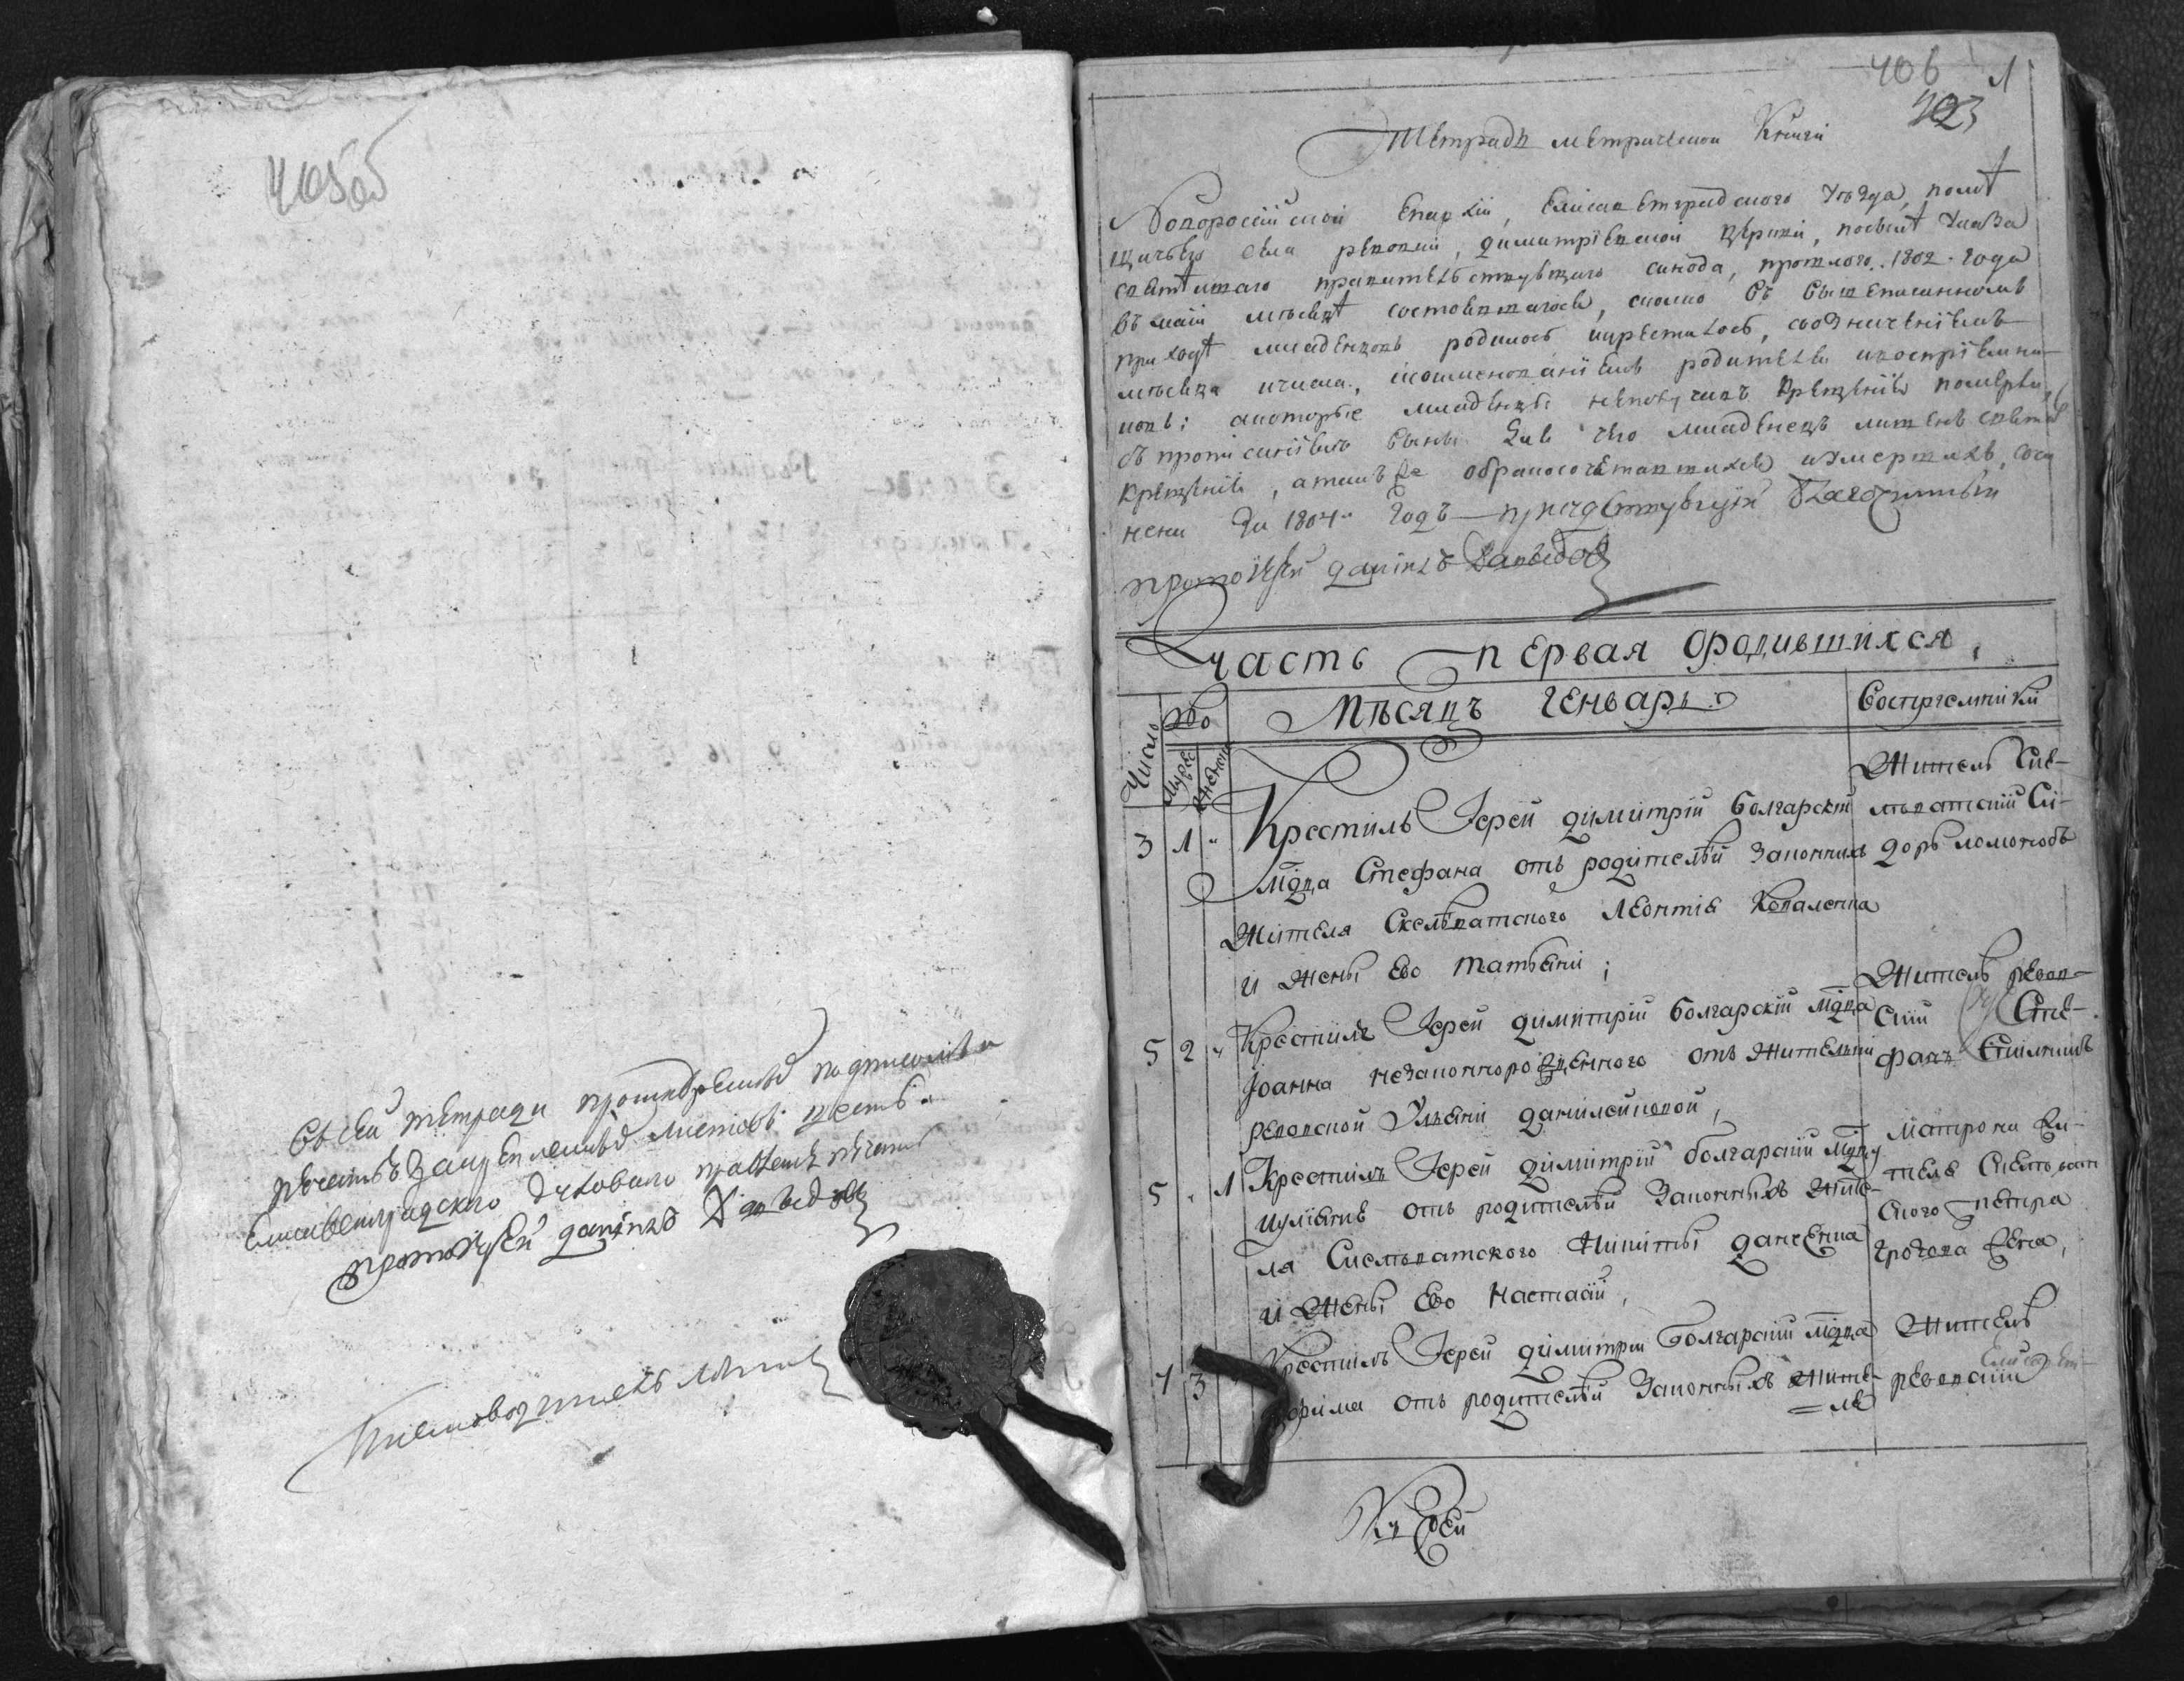 405об
Въ сей тетради прошнуренной подписомъ и
печатью закрепленной листовъ шесть
Елисаветградского духовного правления
протоиерей Даниилъ Давыдовъ
406 1
403
Тетрадь метрической Книги
Новоросийской Епархии, Елисаветградского Уѣзда, помѣ
щичьего села ревовки, димитриевской церкви, посилѣ Указа
святѣйшаго правительствующаго синода, прошлого 1802 года
въ маии месяцѣ состоявшагося, сколко въ вышеписанномъ
приходѣ младенцовъ родилось икрестилось, созначениемъ
месяца ичисла, исоименованиемъ родителей ивосприемни
ковъ; акоторые младенцы неполучивъ крещения померли
съ прописаниемъ вины для чего младенецъ лишенъ святаго
крещения, атакъже обракосочетавшихся иумершихъ, сочи
нена на 1804й годъ присудствующий благочинный
протоиерей Даниилъ Давыдовъ
Часть первая ородившихся,
Число
Мѣсяцъ Генварь
Восприемники
Муж Женс
3 1 " Крестилъ Иерей Димитрий Болгарский
Мдца Стефана отъ родителей Законныхъ
Жителя Скелеватского Леонтия Коваленка
и жены Ево Татьяны;
Житель Ске-
леватский Си-
доръ ломоновъ
5 2 " Крестилъ Иерей Димитрий Болгарский Мдца
Иоанна незаконнорожденного отъ Жителки
ревовской Ульяны Данилейковой,
Житель ревов-
ский Сте-
фанъ
5 " 1 Крестилъ Иерей Димитрий Болгарский Мдцу
иулиянию отъ родителей Законныхъ Жите-
ля Скелеватского Никиты Данченка
и жены Ево Настасии,
матрона жи-
теля Скелеват
ского петра
жена,
7 3 " Крестилъ Иерей Димитрий Болгарский Мдца
Ефима отъ родителей Законныхъ Жите-
=ля
Житель
ревовский
Къ Сей